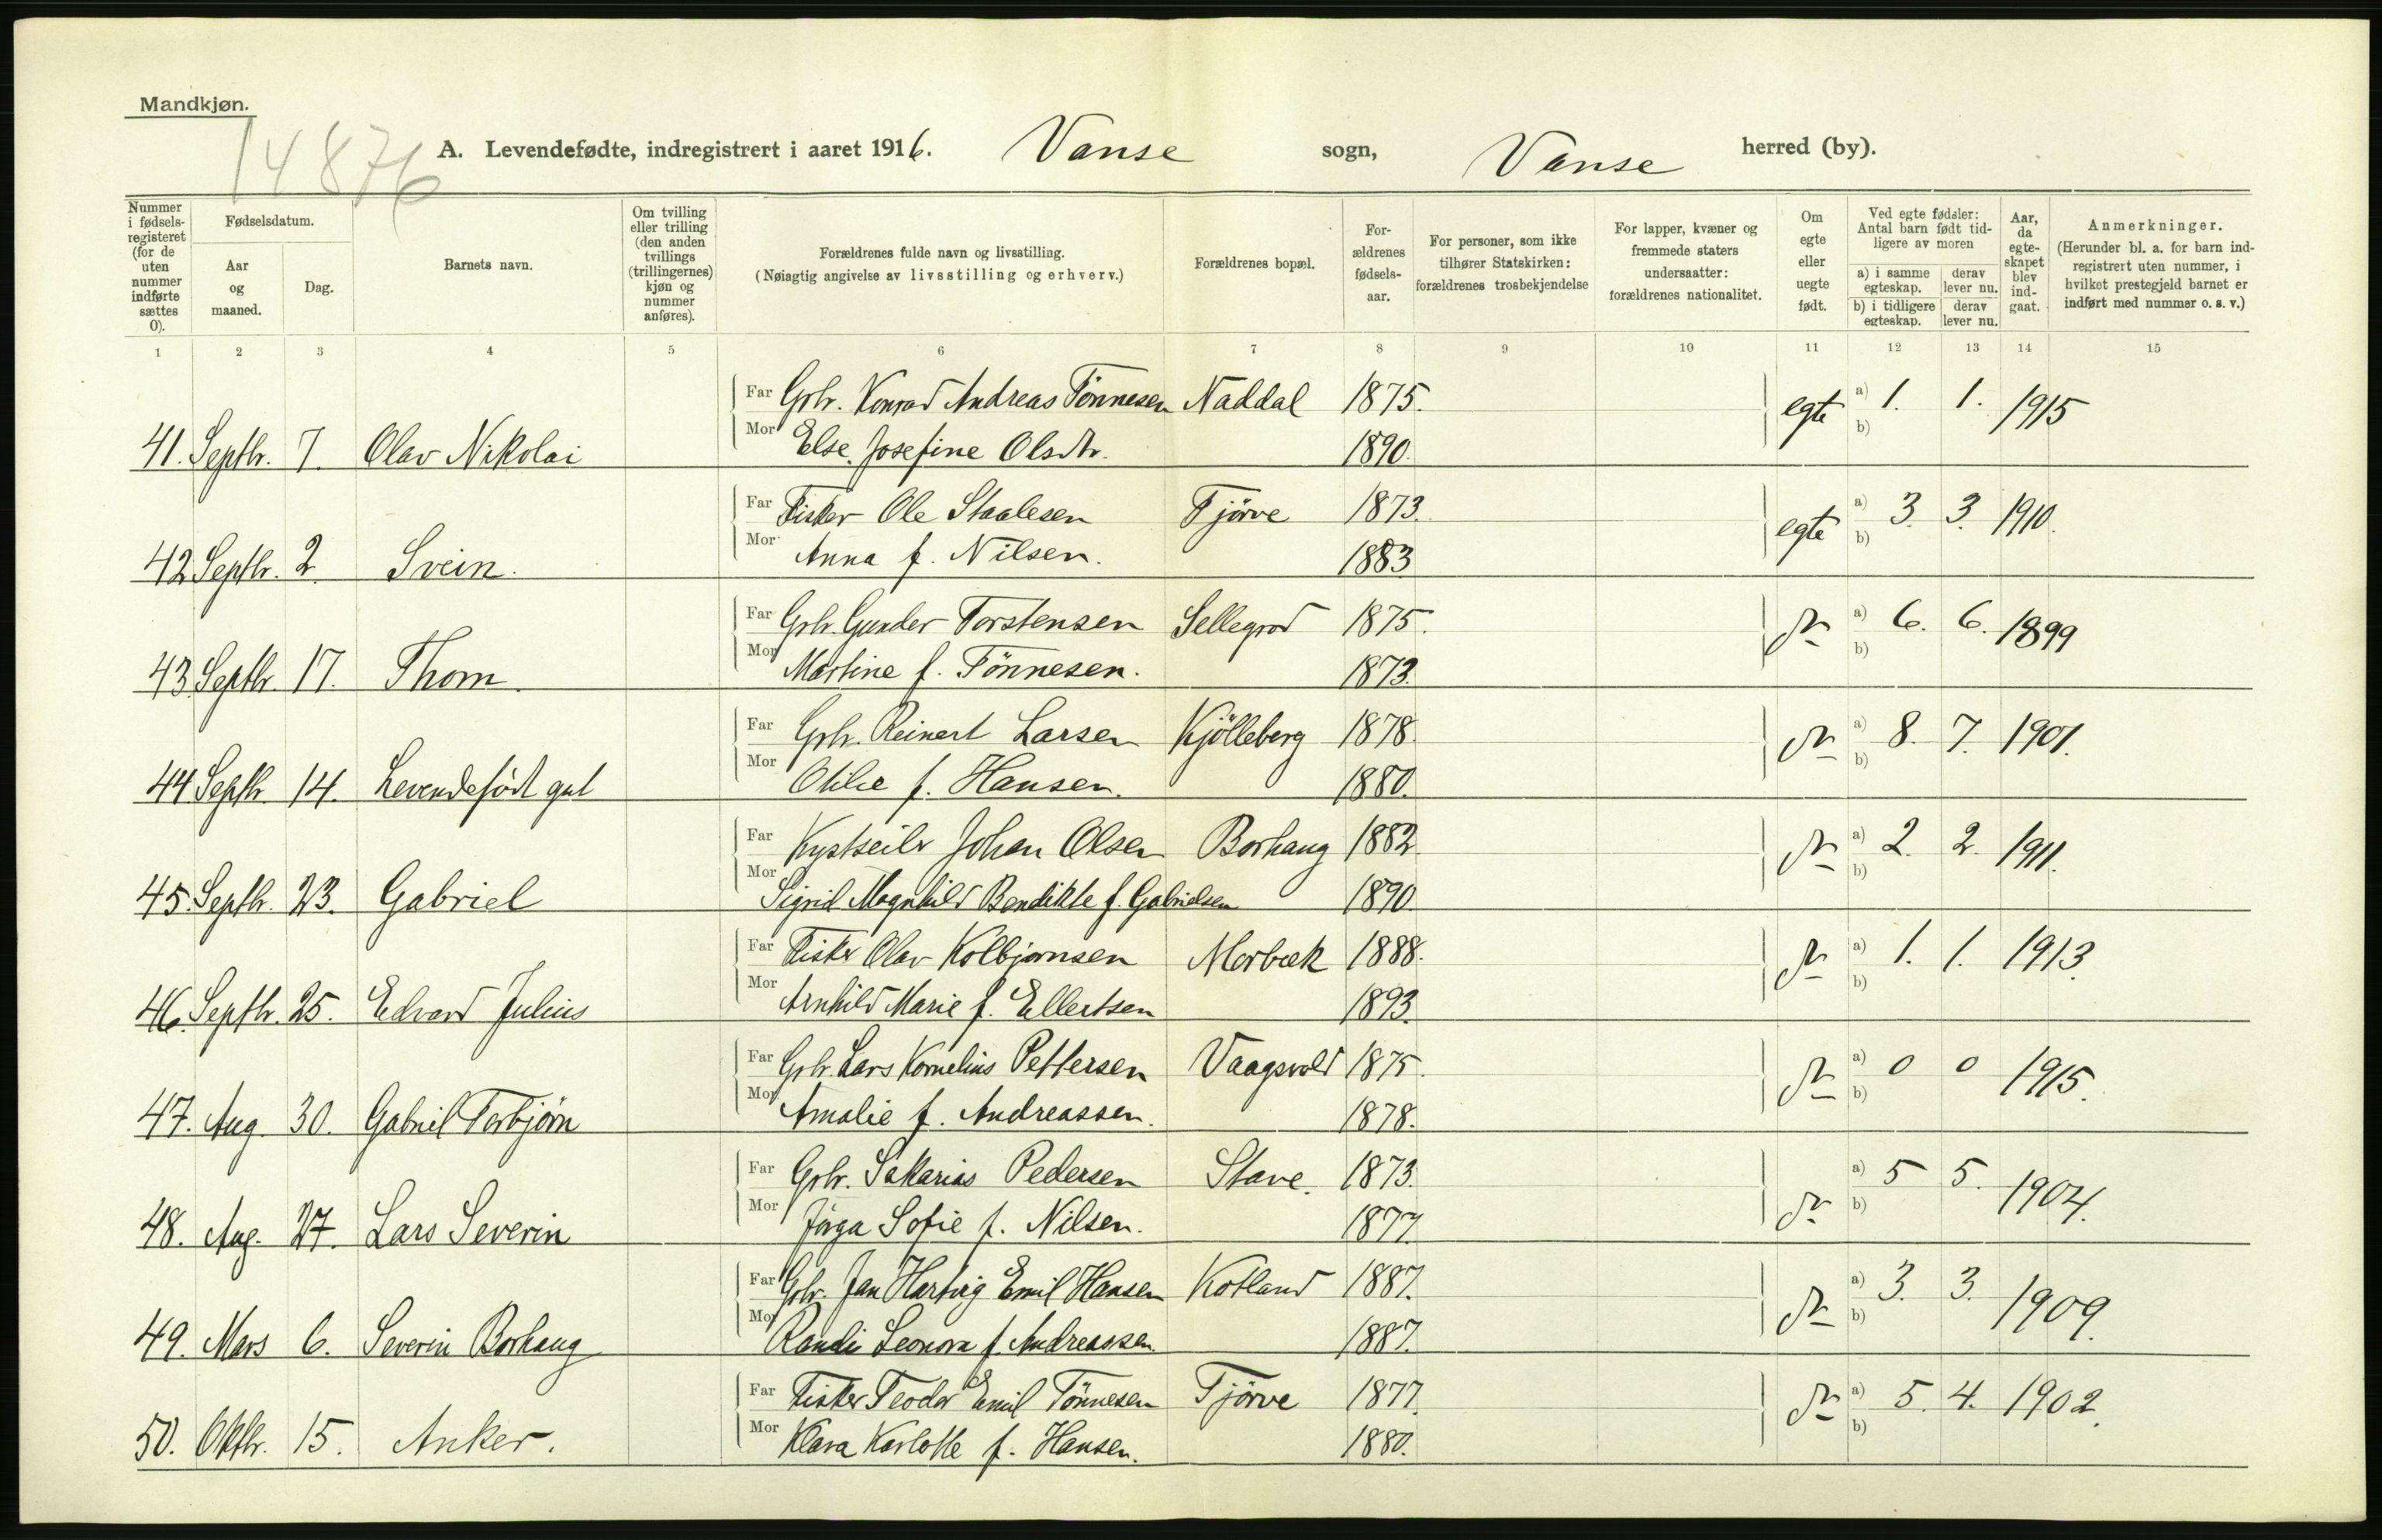 Mandkjøn.
14876
A. Levendefødte, indregistrert i aaret 1916. Vanse sogn, Vanse herred (by).
Nummer i fødselsregisteret (for de uten nummer indførte sættes 0).
Fødselsdatum.
Aar og maaned.
Dag.
Barnets navn.
Om tvilling eller trilling (den anden tvillings (trillingernes) kjøn og nummer anføres).
Forældrenes fulde navn og livsstilling.
(Nøiagtig angivelse av livsstilling og erhverv.)
Forældrenes bopæl.
Forældrenes fødselsaar.
For personer, som ikke tilhører Statskirken: forældrenes trosbekjendelse
For lapper, kvæner og fremmede staters undersaatter: forældrenes nationalitet.
Om egte eller uegte født.
Ved egte fødsler: Antal barn født tidligere av moren
a) i samme egteskap. derav lever nu.
b) i tidligere egteskap. derav lever nu.
Aar, da egteskapet blev indgaat.
Anmerkninger.
(Herunder bl. a. for barn indregistrert uten nummer, i hvilket prestegjeld barnet er indført med nummer o. s. v.)
1 2 3 4 5 6 7 8 9 10 11 12 13 14 15
Far Grbr. Konrad Andreas Tönnesen Naddal 1875. egte a) 1. 1. 1915
41. Septbr. 7. Olav Nikolai Mor Else Josefine Olsdtr. 1890. b)
Far Fisker Ole Staalesen Tjörve 1873. egte a) 3. 3. 1910.
42 Septbr. 2. Svein. Mor Anna f. Nilsen. 1883 b)
Far Grbr. Gunder Torstensen Sellegrod 1875. do a) 6. 6. 1899
43. Septbr. 17. Thom. Mor Martine f. Tönnesen. 1873. b)
Far Grbr. Reinert Larsen Kjölleberg 1878. do a) 8. 7. 1901.
44 Septbr. 14. Levendefödt gut Mor Otilie f. Hansen. 1880. b)
Far Kystseiler Johan Olsen Borhaug 1882. do a) 2. 2. 1911.
45. Septbr. 23. Gabriel Mor Sigrid Magnhild Bendikte f. Gabrielsen 1890. b)
Far Fisker Olav Kolbjørnsen Mørbæk 1888. do a) 1. 1. 1913.
46. Septbr. 25. Edvard Julius Mor Arnhild Marie f. Ellertsen 1893. b)
Far Grbr. Lars Kornelius Pettersen Vaagsvold 1875. do a) 0 0 1915.
47. Aug. 30. Gabriel Torbjörn Mor Amalie f. Andreassen. 1878. b)
Far Grbr. Sakarias Pedersen Stave. 1873. do a) 5 5. 1904.
48. Aug. 27. Lars Severin Mor Jörga Sofie f. Nilsen. 1877. b)
Far Grbr. Jan Hartvig Emil Hansen Kotland 1887. do a) 3. 3. 1909.
49. Mars 6. Severin Borhaug Mor Randi Leonora f. Andreassen. 1887. b)
Far Fisker Teodor Emil Tönnesen Tjörve 1877. do a) 5. 4. 1902.
50. Oktbr. 15. Anker. Mor Klara Karlotte f. Hansen. 1880. b)